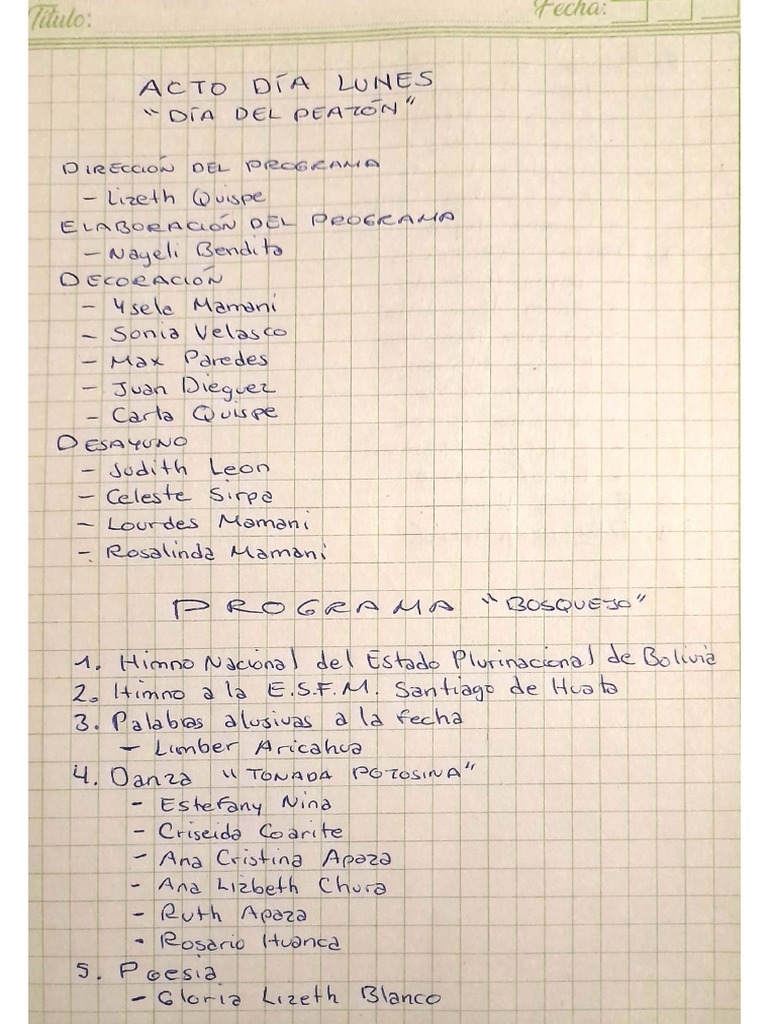 Título:
Fecha:
ACTO DÍA LUNES
"DÍA DEL PEATÓN"
DIRECCIÓN DEL PROGRAMA
- Lizeth Quispe
ELABORACIÓN DEL PROGRAMA
- Nayeli Bendita
DECORACIÓN
- Ysela Mamani
- Sonia Velasco
- Max Paredes
- Juan Dieguez
- Carla Quispe
DESAYUNO
- Judith Leon
- Celeste Sirpa
- Lourdes Mamani
- Rosalinda Mamani
PROGRAMA "BOSQUEJO"
1. Himno Nacional del Estado Plurinacional de Bolivia
2. Himno a la E.S.F.M. Santiago de Huata
3. Palabras alusivas a la fecha
- Limber Aricahua
4. Danza "TONADA POTOSINA"
- Estefany Nina
- Criseida Coarite
- Ana Cristina Apaza
- Ana Lizbeth Chura
- Ruth Apaza
- Rosario Huanca
5. Poesía
- Gloria Lizeth Blanco